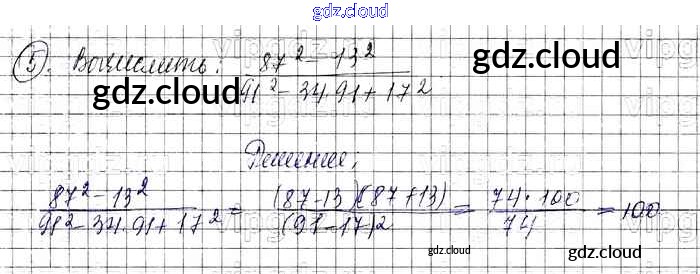 gdz.cloud
5. Вычислить: 87² - 13² / 91² - 34·91 + 17²
gdz.cloud gdz.cloud
Решение:
87² - 13² / 91² - 34·91 + 17² = (87-13)(87+13) / (91-17)² = 74·100 / 74 = 100
gdz.cloud gdz.cloud